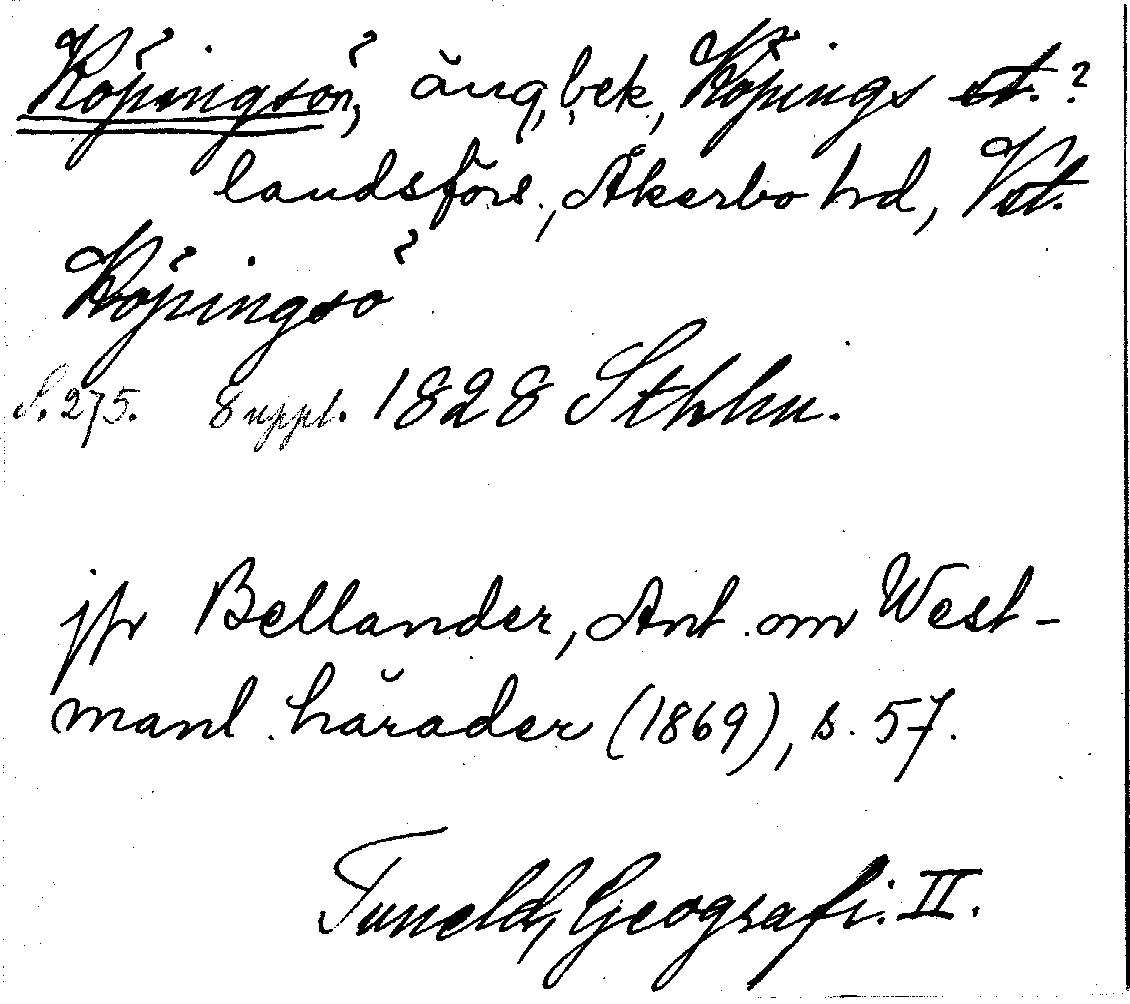 Köpingsön, äng, bek, Köpings st.?
landsförs., Åkerbo hd, Vst.
Köpingsö
S. 275. Suppl. 1828 Sthlm.
jfr Bellander, Ant. om West-
manl. härader (1869), s. 57.
Tuneld, Geografi. II.